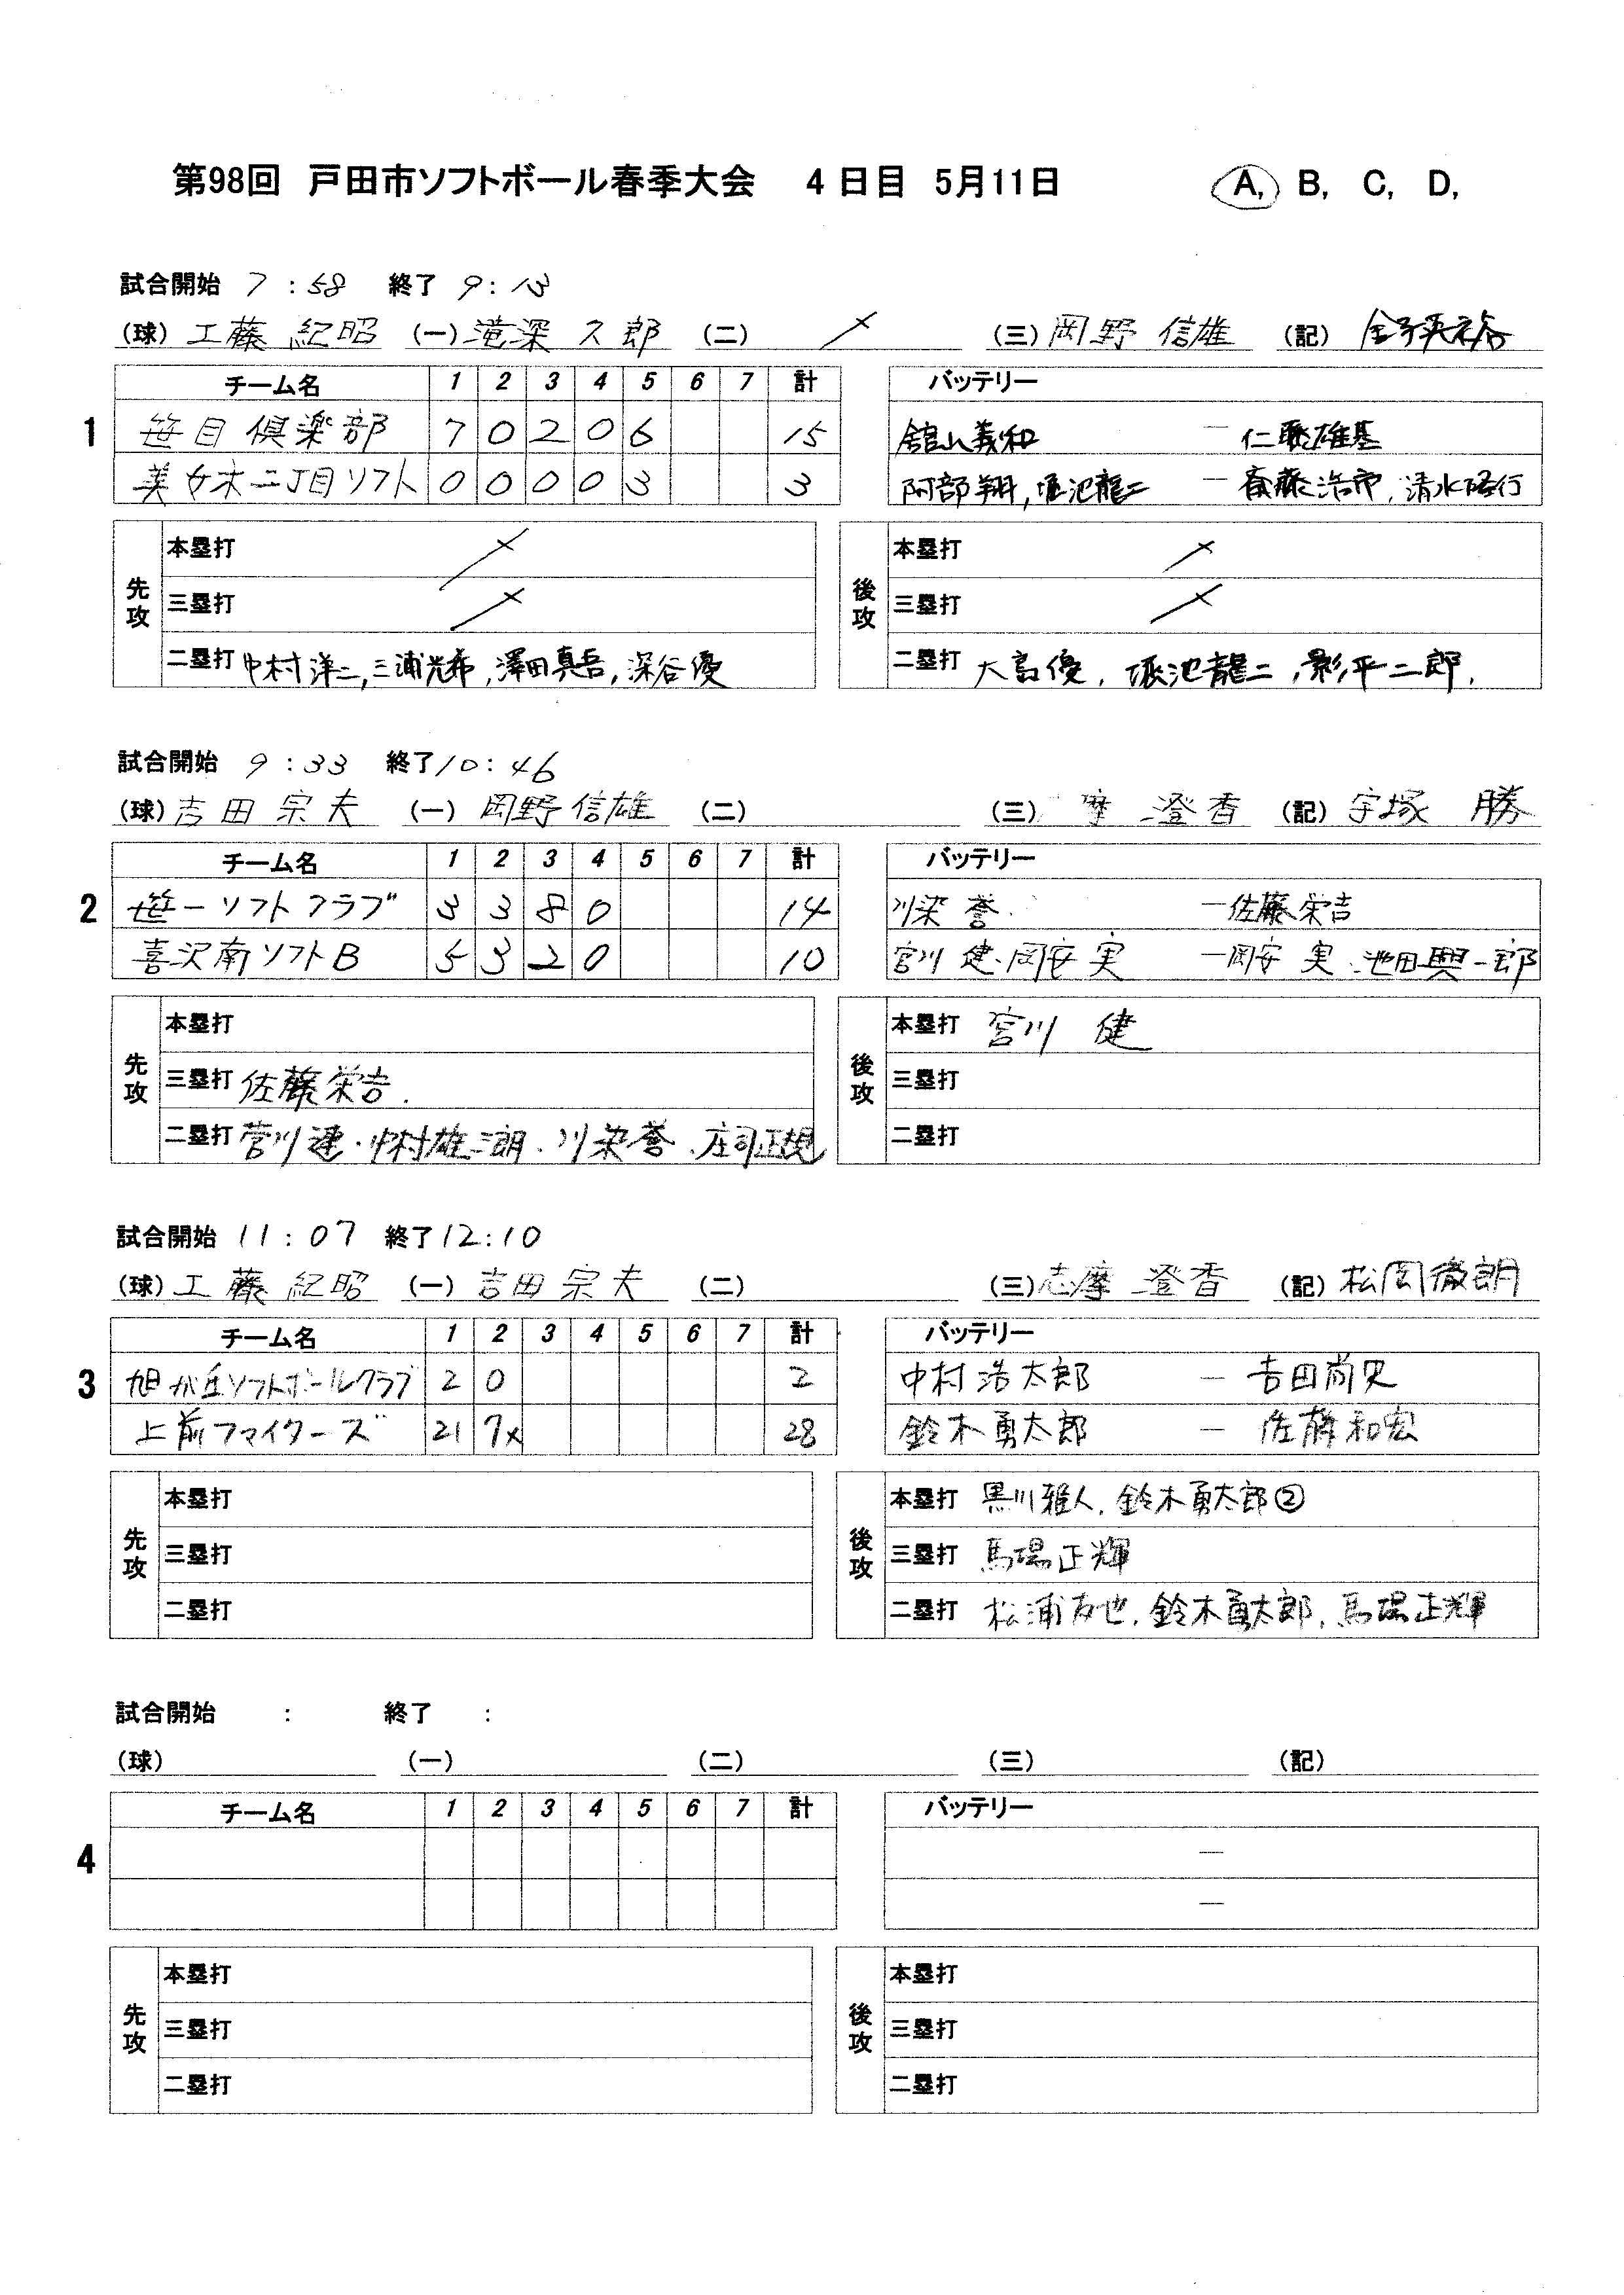 第98回 戸田市ソフトボール春季大会 4日目 5月11日 A, B, C, D,
試合開始 7:58 終了 9:13
(球) 工藤紀昭 (一) 滝深久郎 (二) (三) 岡野信雄 (記) 金子
チーム名 1 2 3 4 5 6 7 計 バッテリー
1 笹目倶楽部 7 0 2 0 6 15 舘山義和 ― 雄基
美女木二丁目ソフト 0 0 0 0 3 3 阿部翔, 堀池龍二 ― 斎藤浩市, 清水
先攻 本塁打 後攻 本塁打
三塁打 三塁打
二塁打 中村洋二, 三浦光希, 澤田真吾, 深谷優 二塁打 大高優, 堀池龍二, 影平二郎,
試合開始 9:33 終了 10:46
(球) 吉田宗夫 (一) 岡野信雄 (二) (三) 摩澄香 (記) 宇塚勝
チーム名 1 2 3 4 5 6 7 計 バッテリー
2 笹一ソフトクラブ 3 3 8 0 14 川染誉 ― 佐藤栄吉
喜沢南ソフトB 5 3 2 0 10 宮川健・岡安実 ― 岡安実・池田興一郎
先攻 本塁打 後攻 本塁打 宮川健
三塁打 佐藤栄吉. 三塁打
二塁打 菅川建・中村雄二朗・川染誉・庄司正 二塁打
試合開始 11:07 終了 12:10
(球) 工藤紀昭 (一) 吉田宗夫 (二) (三) 志摩澄香 (記) 松岡徹朗
チーム名 1 2 3 4 5 6 7 計 バッテリー
3 旭が丘ソフトボールクラブ 2 0 2 中村浩太郎 ― 吉田尚史
上前ファイターズ 21 7x 28 鈴木勇太郎 ― 佐藤和宏
先攻 本塁打 後攻 本塁打 黒川雅人, 鈴木勇太郎②
三塁打 三塁打 馬場正輝
二塁打 二塁打 松浦友也, 鈴木勇太郎, 馬場正輝
試合開始 : 終了 :
(球) (一) (二) (三) (記)
チーム名 1 2 3 4 5 6 7 計 バッテリー
4 ―
―
先攻 本塁打 後攻 本塁打
三塁打 三塁打
二塁打 二塁打